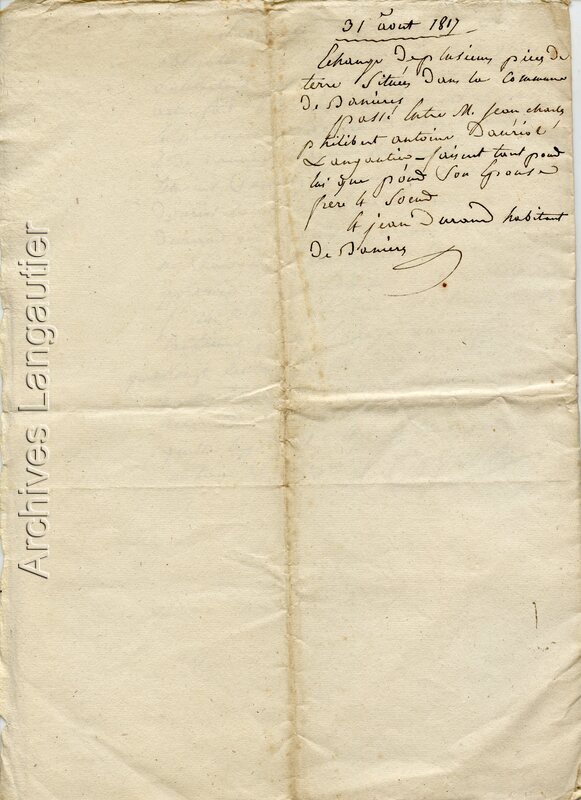 31 aout 1817
Echange de plusieurs pieces de
terre Situées dans la Commune
De Banieres
passé Entre M. Jean charles
philibert antoine Dauriol
Langautier faisant tant pour
lui que pour Son Epouse
frere & Soeur
& jean Durand habitant
De Banieres
Archives Langautier